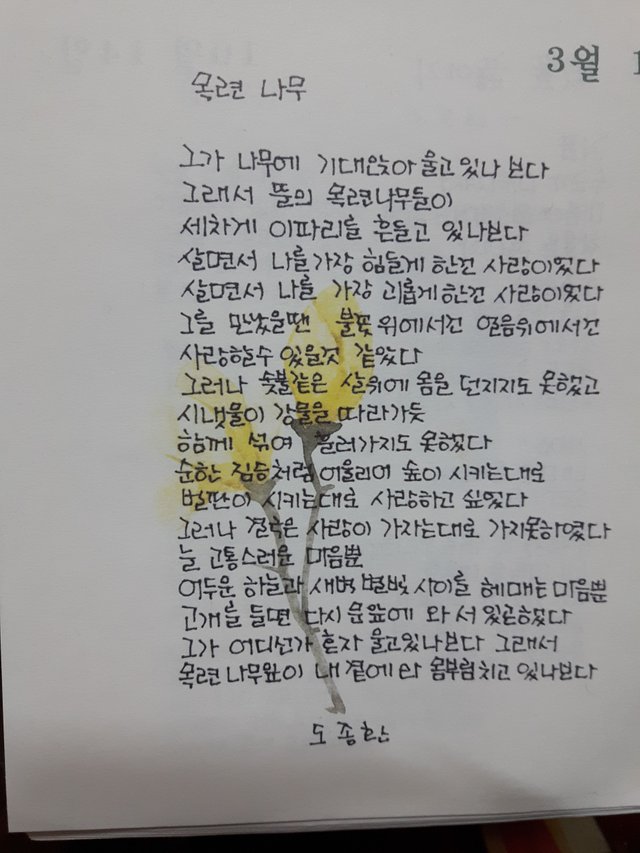 3월 1
목련 나무
그가 나무에 기대앉아 울고 있나 보다
그래서 뜰의 목련나무들이
세차게 이파리를 흔들고 있나보다
살면서 나를 가장 힘들게 한건 사랑이었다
살면서 나를 가장 괴롭게 한건 사랑이었다
그를 만났을땐 불꽃 위에서건 얼음위에서건
사랑할수 있을것 같았다
그러나 숯불같은 살위에 몸을 던지지도 못했고
시냇물이 강물을 따라가듯
함께 섞여 흘러가지도 못했다
순한 짐승처럼 어울리어 숲이 시키는대로
벌판이 시키는대로 사랑하고 싶었다
그러나 결국은 사랑이 가자는대로 가지못하였다
늘 고통스러운 마음뿐
어두운 하늘과 새벽 별빛 사이를 헤매는 마음뿐
고개를 들면 다시 문앞에 와 서 있곤했다
그가 어디선가 혼자 울고있나보다 그래서
목련나무잎이 내 곁에 와 몸부림치고 있나보다
도종환